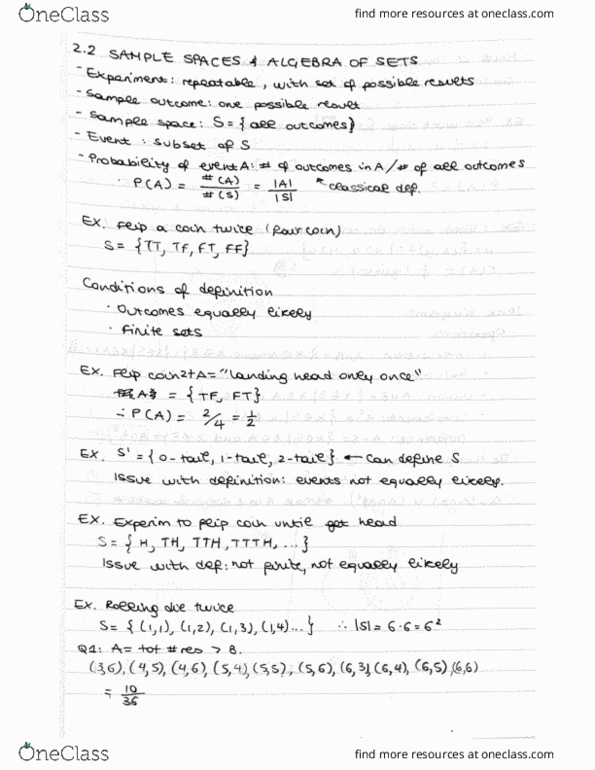 OneClass
find more resources at oneclass.com
2.2 SAMPLE SPACES & ALGEBRA OF SETS
- Experiment: repeatable, with set of possible results
- Sample outcome: one possible result
- Sample space: S = {all outcomes}
- Event: subset of S
- Probability of event A: # of outcomes in A / # of all outcomes
· P(A) = #(A)/#(S) = |A|/|S| ↖ classical def.
EX. Flip a coin twice (fair coin)
S = {TT, TF, FT, FF}
Conditions of definition
· Outcomes equally likely
· Finite sets
EX. Flip coin 2+ A = "landing head only once"
A = {TF, FT}
∴ P(A) = 2/4 = 1/2
EX. S' = {0-tail, 1-tail, 2-tail} ← can define S
Issue with definition: events not equally likely.
EX. Experim to flip coin until get head
S = {H, TH, TTH, TTTH, ...}
Issue with def: not finite, not equally likely
EX. Rolling die twice
S = {(1,1), (1,2), (1,3), (1,4)...} ∴ |S| = 6·6 = 6²
Q1: A = tot # res > 8.
(3,6), (4,5), (4,6), (5,4), (5,5), (5,6), (6,3), (6,4), (6,5), (6,6)
= 10/36
OneClass
find more resources at oneclass.com